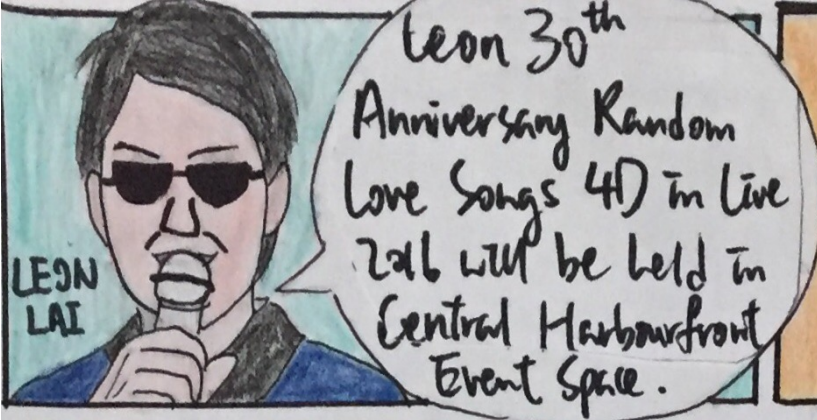 LEON
LAI
Leon 30th
Anniversary Random
Love Songs 4D in Live
2016 will be held in
Central Harbourfront
Event Space.